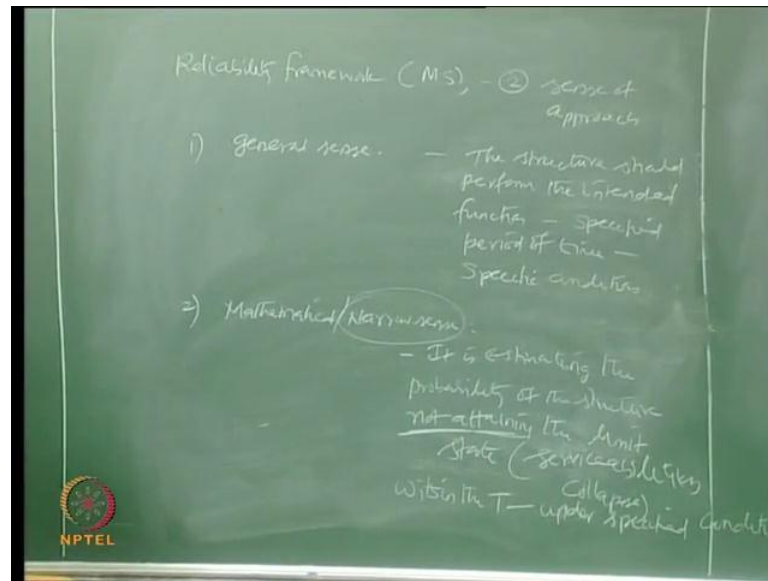 Reliability framework (MS), - ② sense of
approach
1) general sense. - The structure should
perform the intended
function - specified
period of time -
Specific conditions
2) Mathematical/Narrow sense.
- It is estimating the
probability of the structure
not attaining the limit
state (serviceability
collapse)
within the T - under specified conditi
NPTEL